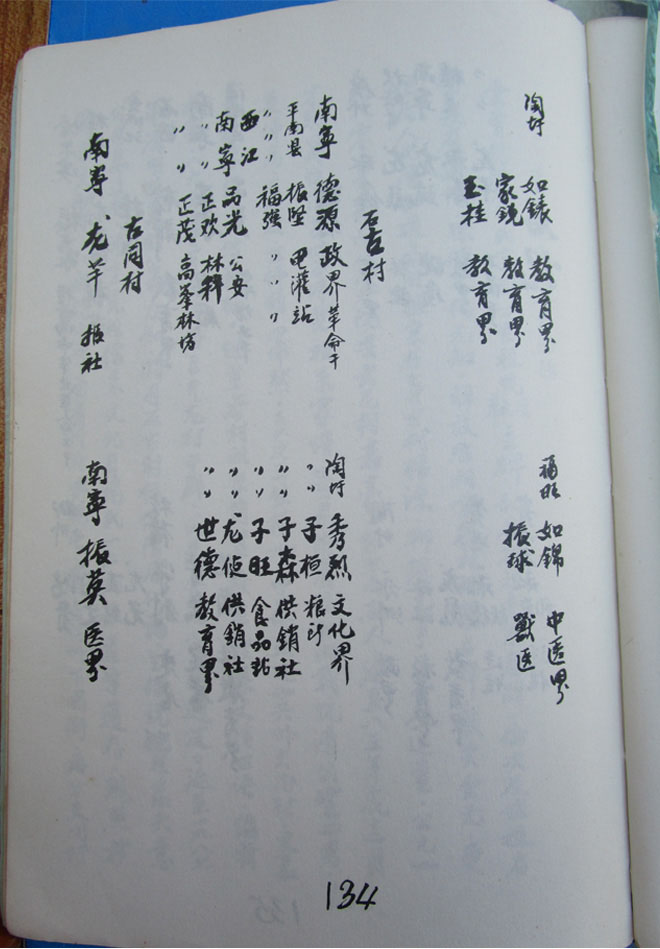 陶圩 如錶 教育界
家鏡 教育界
玉桂 教育界
福旺 如錦 中医界
振球 獸医
石古村
南寧 德源 政界革命干
平南县 振坚 电灌站
〃 〃 〃 福强 〃 〃 〃
西江
南寧 品光 公安
〃 〃 正欢 林科
〃 〃 正茂 高峯林坊
陶圩 秀烈 文化界
〃 〃 子桓 粮所
〃 〃 子森 供銷社
〃 〃 子旺 食品站
〃 〃 尤侦 供銷社
〃 〃 世德 教育界
古同村
南寧 尤芊 报社
南寧 振英 医界
134